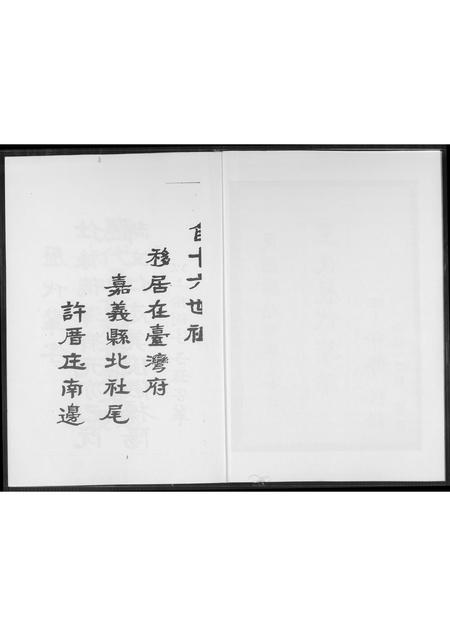 自十六世祖
移居在臺灣府
嘉義縣北社尾
許厝庄南邊